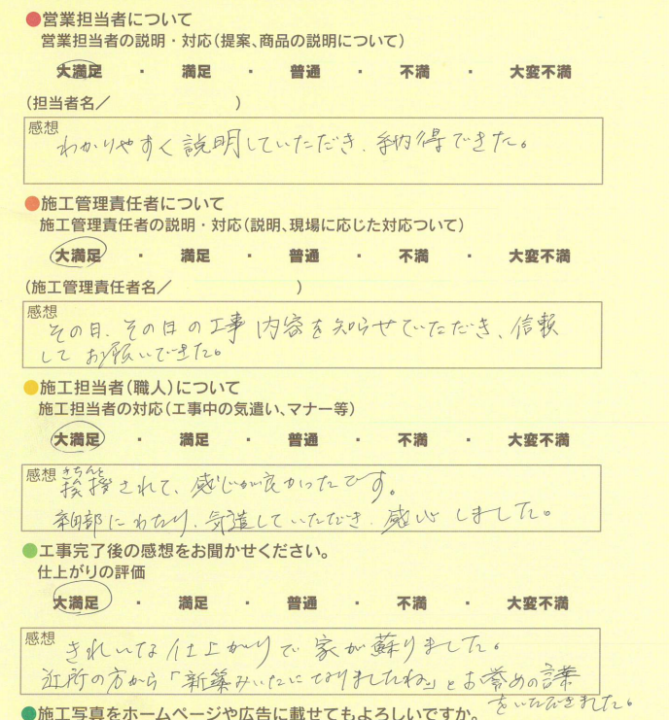 ●営業担当者について
営業担当者の説明・対応(提案、商品の説明について)
大満足 ・ 満足 ・ 普通 ・ 不満 ・ 大変不満
(担当者名／ )
感想
わかりやすく説明していただき、納得できた。
●施工管理責任者について
施工管理責任者の説明・対応(説明、現場に応じた対応ついて)
大満足 ・ 満足 ・ 普通 ・ 不満 ・ 大変不満
(施工管理責任者名／ )
感想
その日、その日の工事内容を知らせていただき、信頼
してお願いできた。
●施工担当者(職人)について
施工担当者の対応(工事中の気遣い、マナー等)
大満足 ・ 満足 ・ 普通 ・ 不満 ・ 大変不満
感想
きちんと
挨拶されて、感じが良かったです。
細部にわたり、気遣していただき、感心しました。
●工事完了後の感想をお聞かせください。
仕上がりの評価
大満足 ・ 満足 ・ 普通 ・ 不満 ・ 大変不満
感想
きれいな仕上がりで家が蘇りました。
近所の方から「新築みたいになりましたね」とお誉めの言葉
をいただきました。
●施工写真をホームページや広告に載せてもよろしいですか。